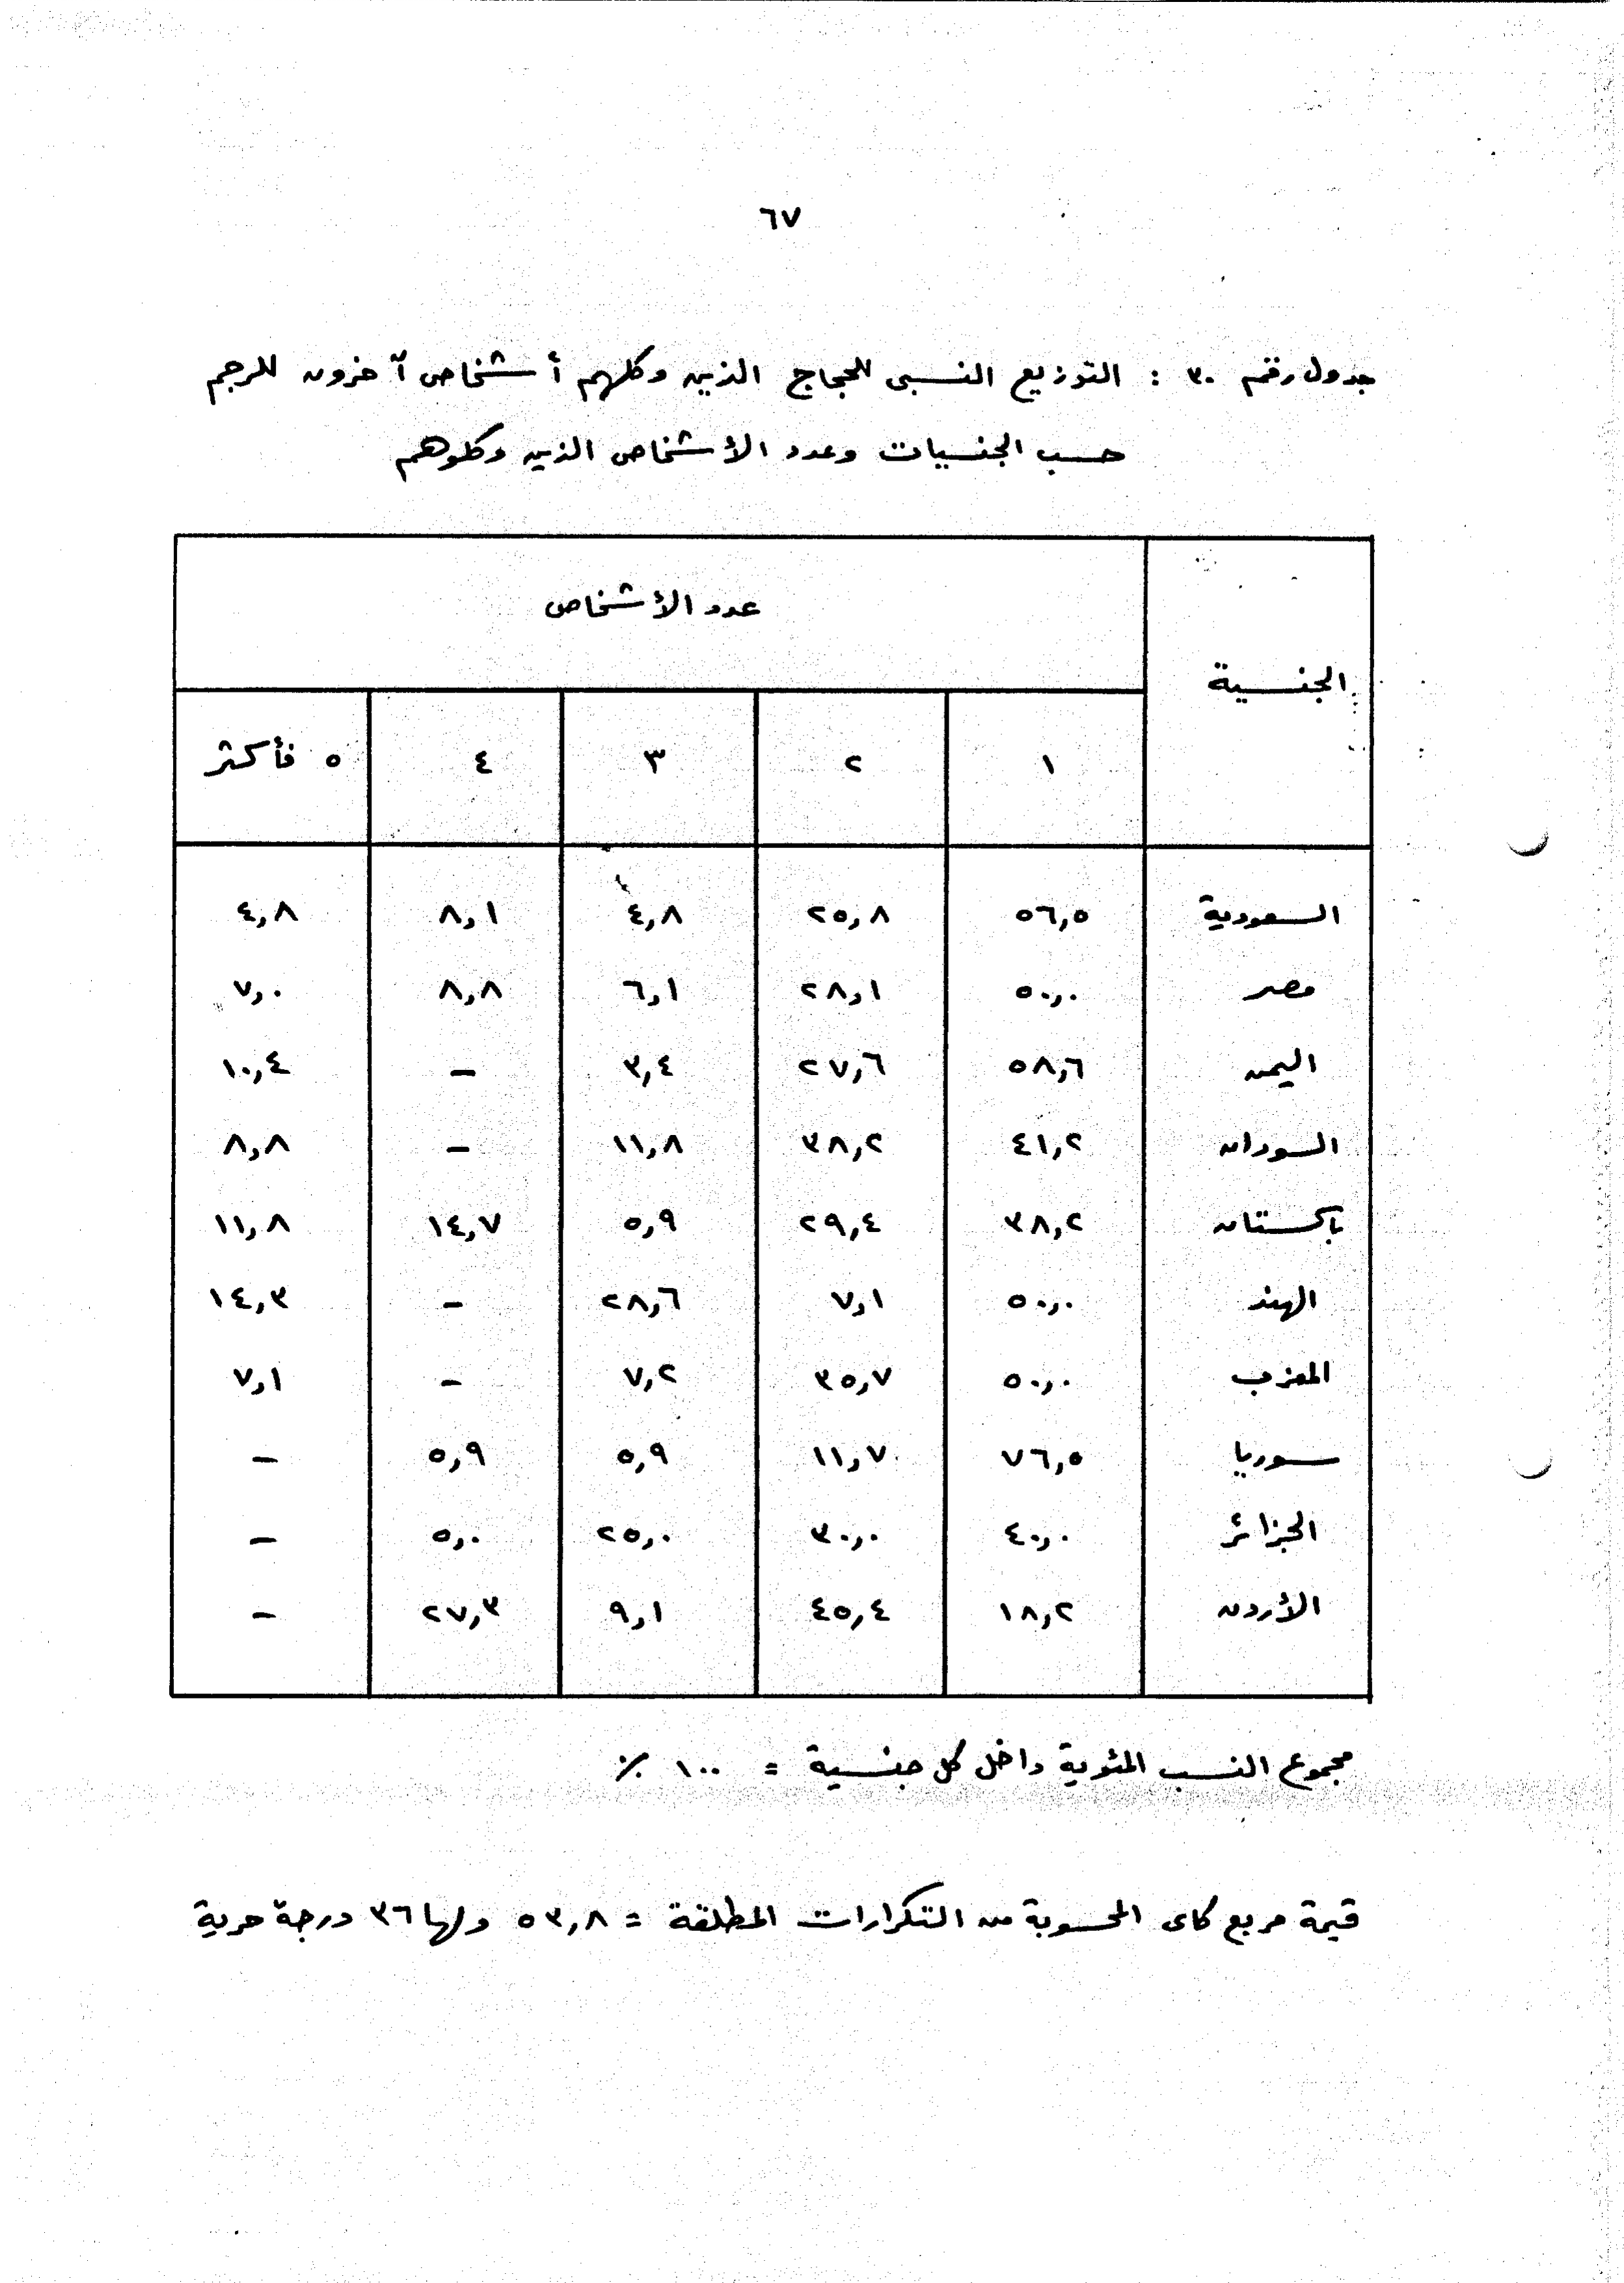 ٦٧
جدول رقم ٣٠ : التوزيع النسبى للحجاج الذين وكلهم أشخاص آخرون للرجم
حسب الجنسيات وعدد الأشخاص الذين وكلوهم
عدد الأشخاص
الجنسية
١ ٢ ٣ ٤ ٥ فأكثر
السعودية ٥٦,٥ ٢٥,٨ ٤,٨ ٨,١ ٤,٨
مصر ٥٠,٠ ٢٨,١ ٦,١ ٨,٨ ٧,٠
اليمن ٥٨,٦ ٢٧,٦ ٣,٤ – ١٠,٤
السودان ٤١,٢ ٣٨,٢ ١١,٨ – ٨,٨
باكستان ٣٨,٢ ٢٩,٤ ٥,٩ ١٤,٧ ١١,٨
الهند ٥٠,٠ ٧,١ ٢٨,٦ – ١٤,٣
المغرب ٥٠,٠ ٣٥,٧ ٧,٢ – ٧,١
سوريا ٧٦,٥ ١١,٧ ٥,٩ ٥,٩ –
الجزائر ٤٠,٠ ٣٠,٠ ٢٥,٠ ٥,٠ –
الأردن ١٨,٢ ٤٥,٤ ٩,١ ٢٧,٣ –
مجموع النسب المئوية داخل كل جنسية = ١٠٠ ٪
قيمة مربع كاى المحسوبة من التكرارات المطلقة = ٥٣,٨ ولها ٣٦ درجة حرية